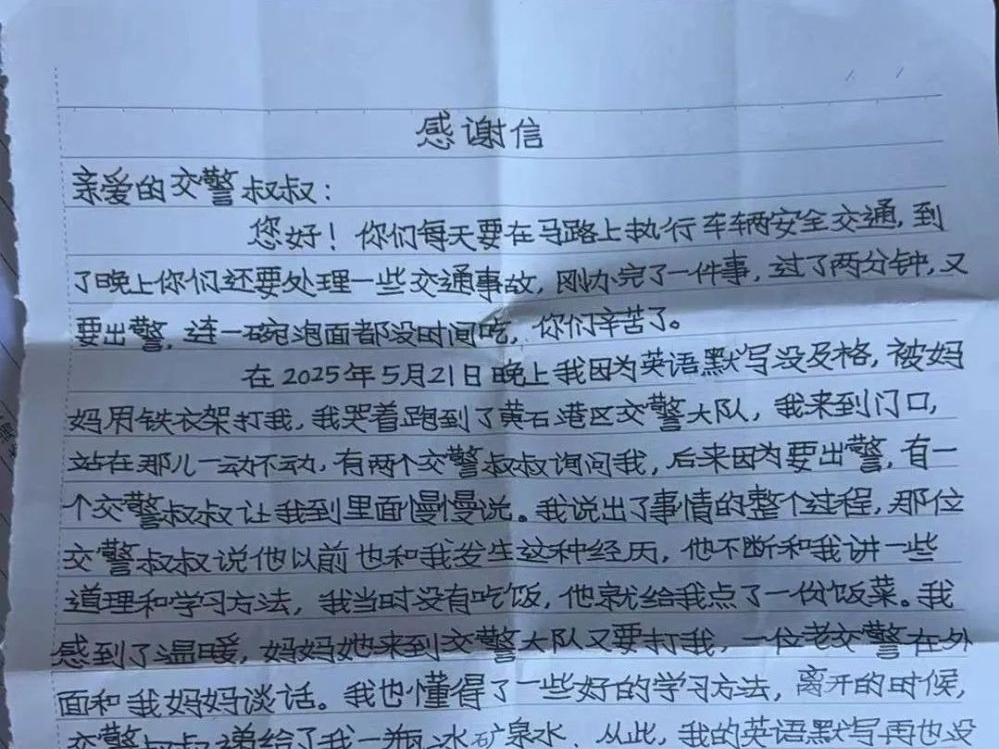 感谢信
亲爱的交警叔叔：
您好！你们每天要在马路上执行车辆安全交通，到
了晚上你们还要处理一些交通事故，刚办完了一件事，过了两分钟，又
要出警，连一碗泡面都没时间吃，你们辛苦了。
在2025年5月21日晚上我因为英语默写没及格，被妈
妈用铁衣架打我，我哭着跑到了黄石港区交警大队，我来到门口，
站在那儿一动不动，有两个交警叔叔询问我，后来因为要出警，有一
个交警叔叔让我到里面慢慢说。我说出了事情的整个过程，那位
交警叔叔说他以前也和我发生这种经历，他不断和我讲一些
道理和学习方法，我当时没有吃饭，他就给我点了一份饭菜。我
感到了温暖，妈妈她来到交警大队又要打我，一位老交警在外
面和我妈妈谈话。我也懂得了一些好的学习方法，离开的时候，
交警叔叔递给了我一瓶冰矿泉水，从此，我的英语默写再也没